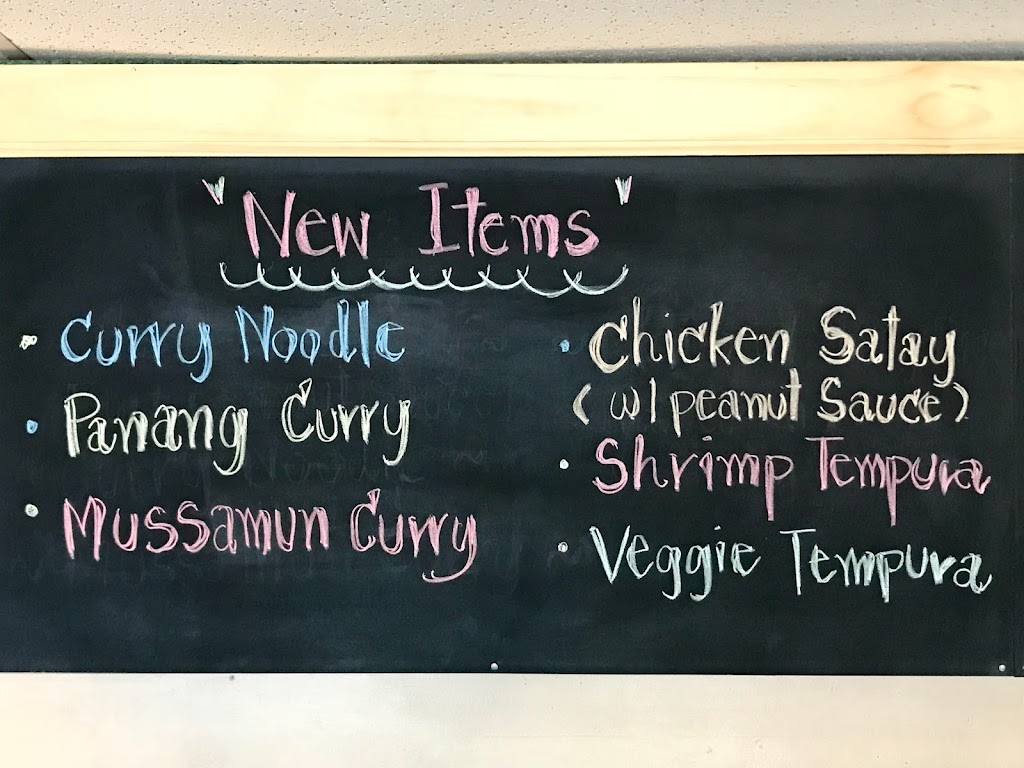 "New Items"
• Curry Noodle
• Panang Curry
• Mussamun Curry
• Chicken Satay
(w/ peanut Sauce)
• Shrimp Tempura
• Veggie Tempura